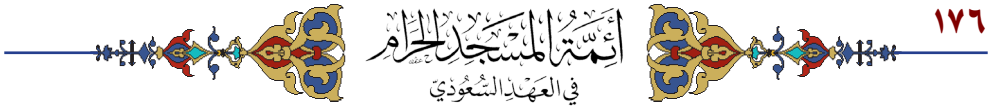 ١٧٦
أَئِمَّةُ المَسْجِدِ الحَرَامِ
فِي العَهْدِ السُّعُودِيِّ